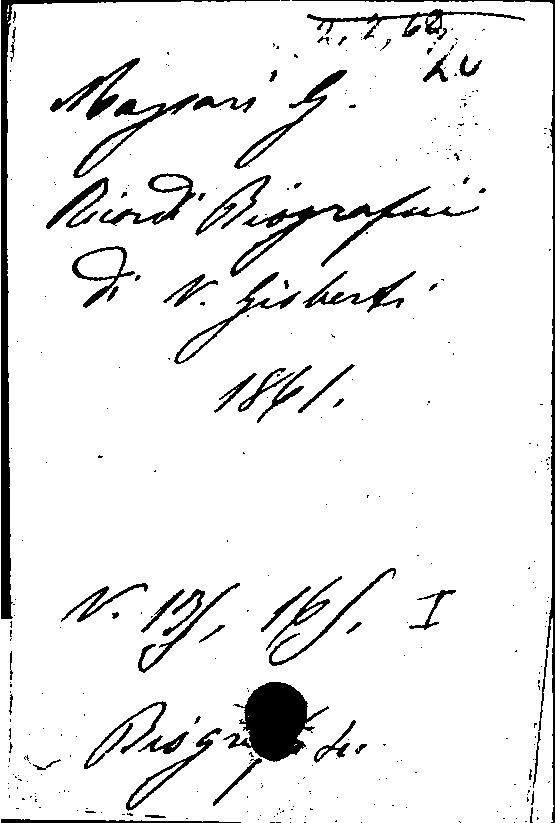 2, 2, 60,
20
Massari G.
Ricordi Biografici
di V. Gioberti
1861.
V. 13/, 16/. I